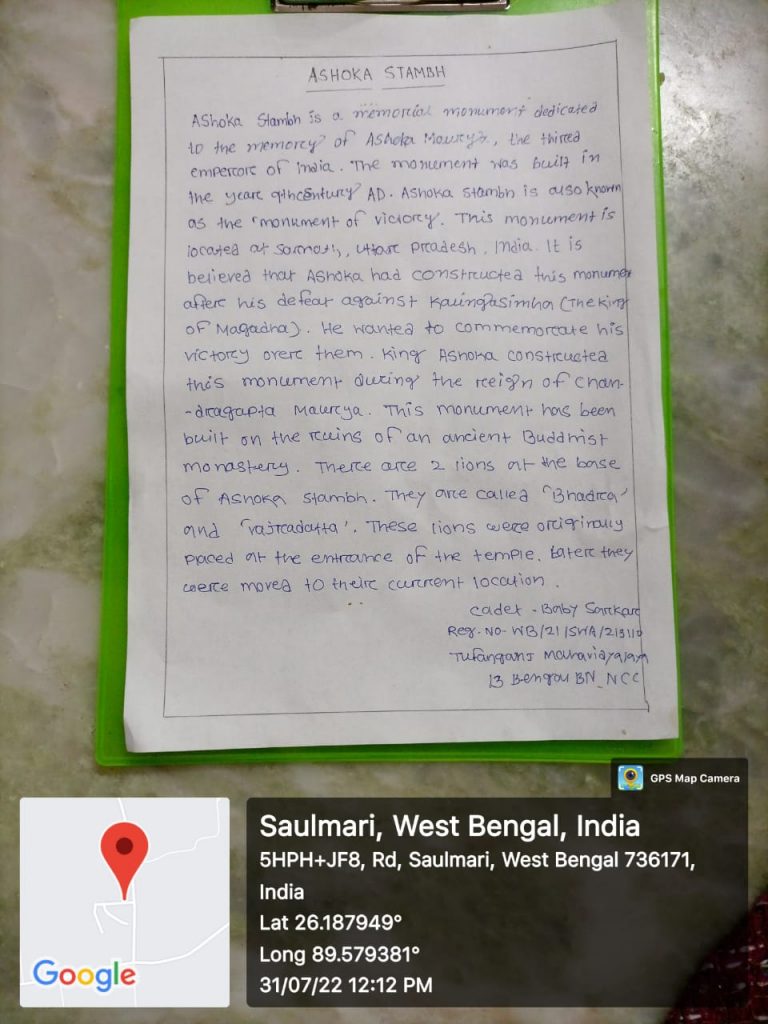 ASHOKA STAMBH
Ashoka Stambh is a memorial monument dedicated
to the memory of Ashoka Maurya, the thired
emperore of India. The monument was built in
the yeare 9thcentury AD. Ashoka Stambh is also known
as the 'monument of victory. This monument is
located at Sarnath, Uttar Pradesh, India. It is
believed that Ashoka had constructed this monumen
aftere his defeat against Kalingasimha (The King
of Magadha). He wanted to commemorate his
victory overe them. King Ashoka constructed
this monument during the reign of Chan-
-dragapta Maurya. This monument has been
built on the ruins of an ancient Buddhist
monastery. There are 2 lions at the base
of Ashoka Stambh. They are called 'Bhadra'
and 'vajradatta'. These lions were originally
placed at the entrance of the temple. Latere they
were moved to their current location.
Cadet - Baby Sarkar
Reg. No- WB/21/SWA/
Tufanganj Mahavidyalaya
13 Bengal BN NCC
GPS Map Camera
Google
Saulmari, West Bengal, India
5HPH+JF8, Rd, Saulmari, West Bengal 736171,
India
Lat 26.187949°
Long 89.579381°
31/07/22 12:12 PM